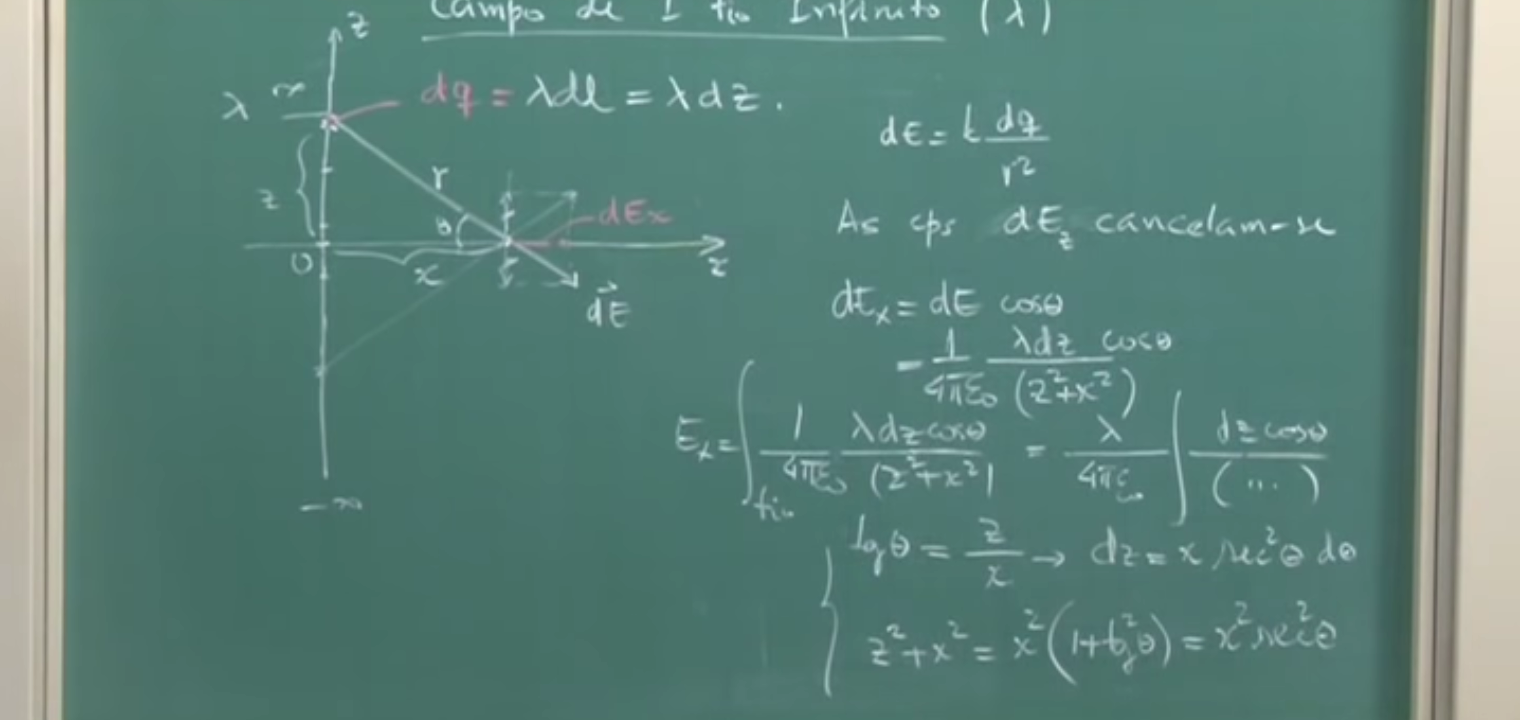 Campo de 1 fio Infinito (λ)
z
∞
λ
dq = λdl = λdz.
z
r
θ
dEx
0
x
x
dE⃗
-∞
dE = k dq / r²
As cps dE_z cancelam-se
dE_x = dE cosθ
= 1/4πε₀ λdz cosθ / (z²+x²)
E_x = ∫fio 1/4πε₀ λdz cosθ / (z²+x²) = λ/4πε₀ ∫ dz cosθ / (...)
tgθ = z/x → dz = x sec²θ dθ
z²+x² = x²(1+tg²θ) = x² sec²θ